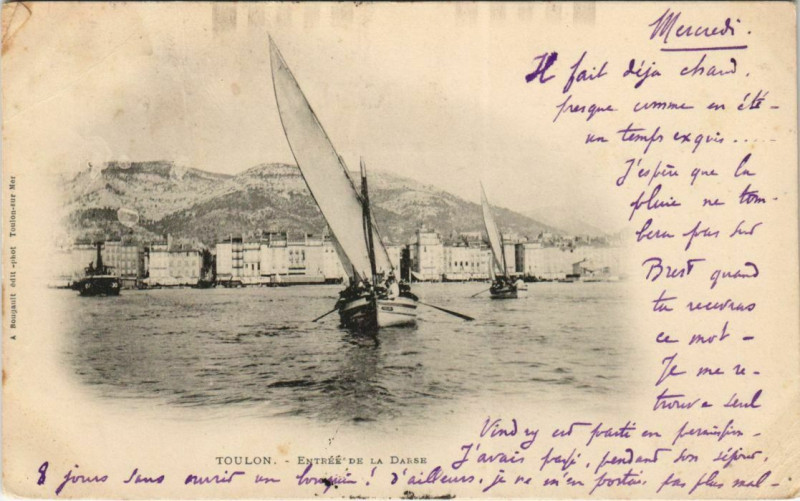 Mercredi.
Il fait déja chaud,
presque comme en été -
un temps exquis.....
J'espère que la
pluie ne tom-
bera pas sur
Brest quand
tu recevras
ce mot -
Je me re-
trouve seul
Vindry est parti en permission -
J'avais payé, pendant son séjour,
8 jours sans ouvrir un bouquin! d'ailleurs, je ne m'en portais pas plus mal -
TOULON. - ENTRÉE DE LA DARSE
A Bougault édit -phot Toulon-sur Mer